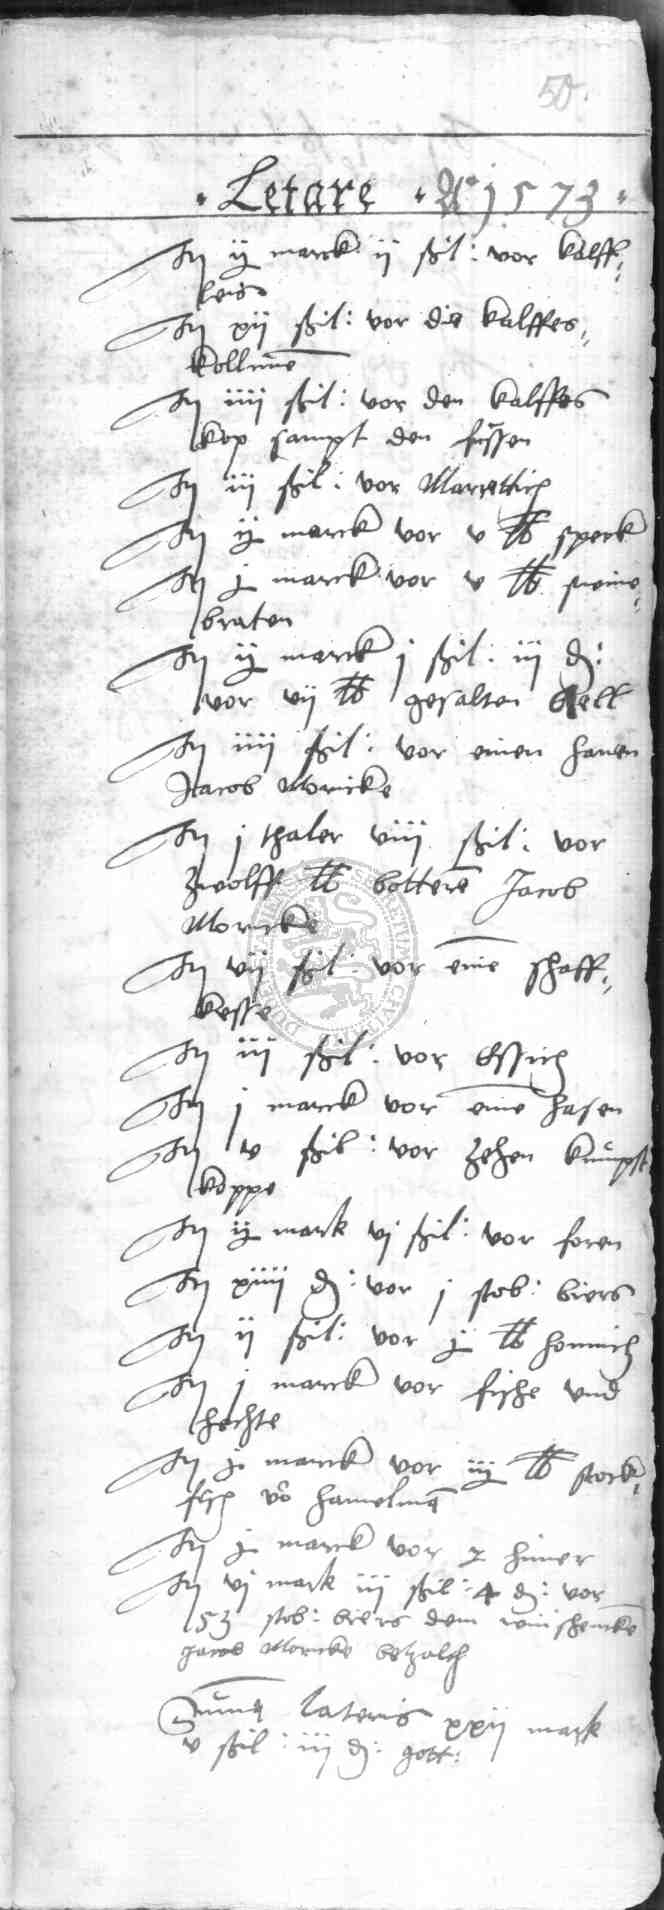 50.
Letare Aº 1573
It ij marck ij ßil: vor kalff,
leis
It xij ßil: vor die kalffes,
kollune
It iiij ßil: vor den kalffes
kop sampt den füssen
It iij ßil: vor Marrettich
It ij marck vor v lb speck
It j marck vor v lb sweine,
braten
It ij marck j ßil: iij d:
vor vij lb gesalten
It iiij ßil: vor einen hanen
Jacob Moricke
It j thaler viij ßil: vor
zwolff lb botteren Jacob
Moricke
It vij ßil: vor eine schaff,
kesse
It iij ßil: vor Essich
It j marck vor eine hasen
It v ßil: vor zehen kumpst
koppe
It ij mark vj ßil: vor foren
It xiiij d: vor j stob: biers
It ij ßil: vor j lb honnich
It j marck vor fische vnd
hechte
It j marck vor iij lb stock,
fisch vo hamelman
It j marck vor 2 hüner
It vj mark iij ßil: 4 d: vor
53 stob: biers dem winschencke
Jacob Moricke betzalth
Suma lateris xxij mark
v ßil: iij d: gott: